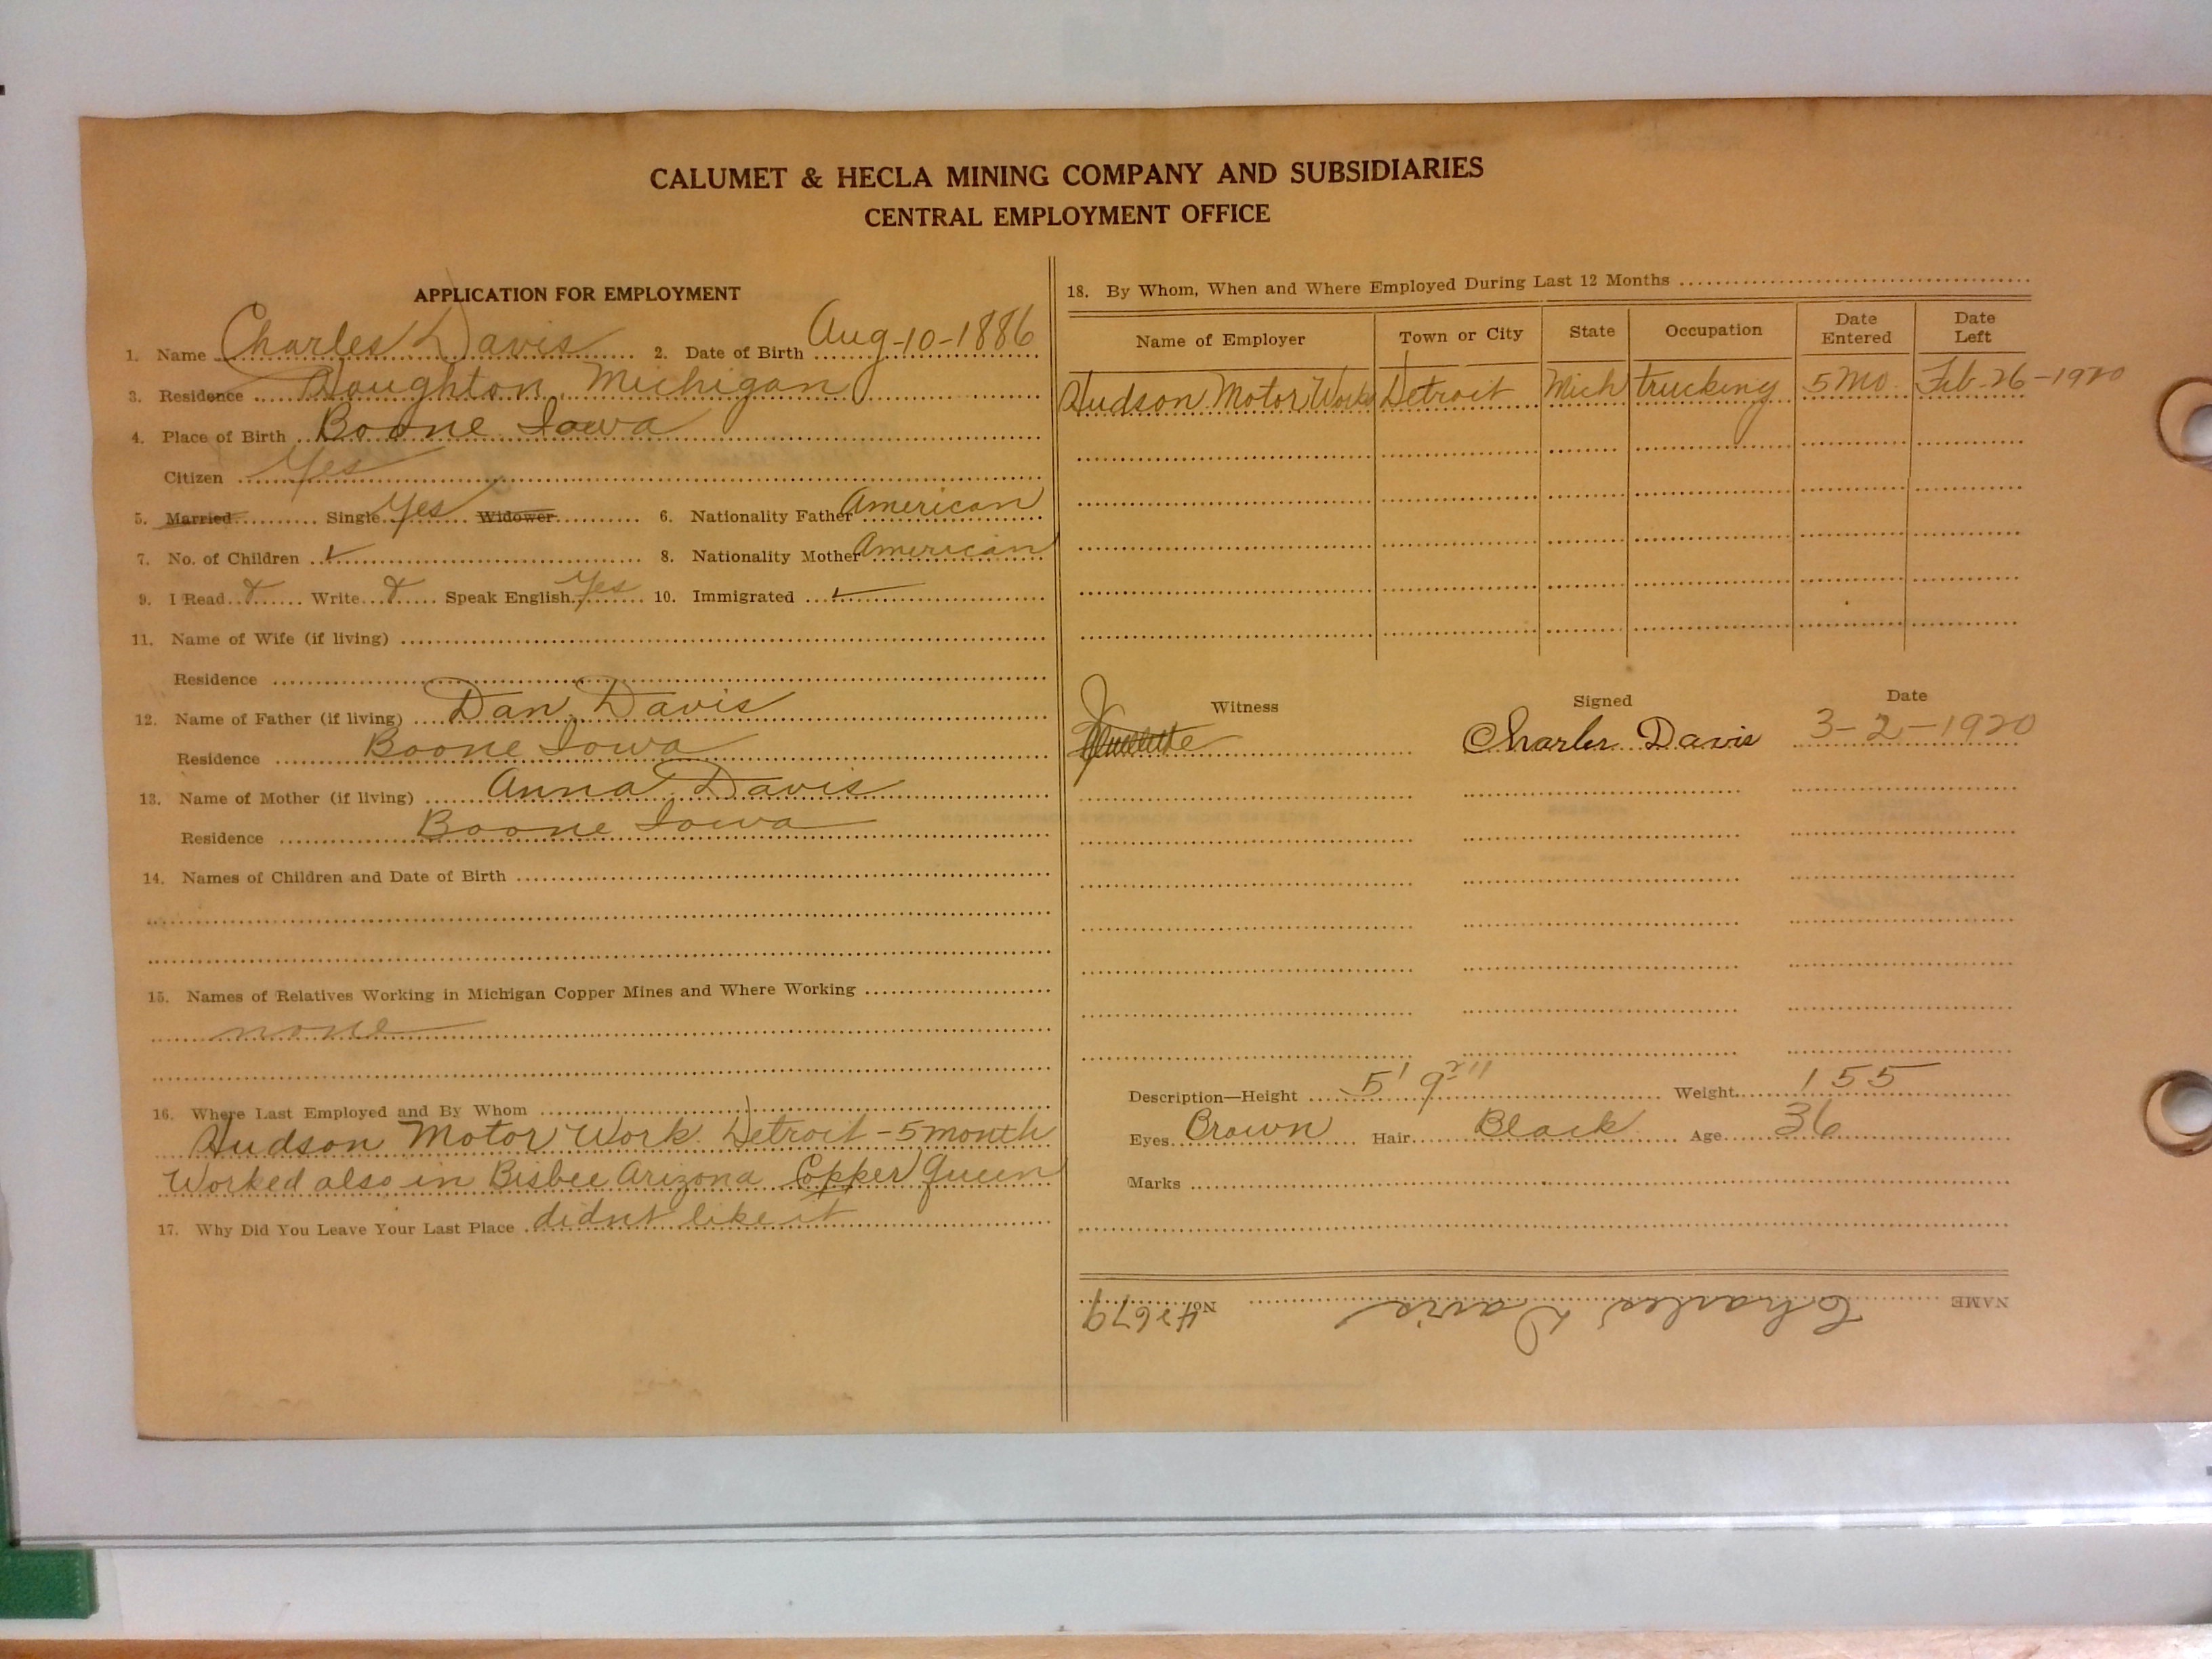 CALUMET & HECLA MINING COMPANY AND SUBSIDIARIES
CENTRAL EMPLOYMENT OFFICE
APPLICATION FOR EMPLOYMENT
1. Name Charles Davis 2. Date of Birth Aug-10-1886
3. Residence Houghton, Michigan
4. Place of Birth Boone Iowa
Citizen Yes
5. Married Single Yes Widower 6. Nationality Father American
7. No. of Children ✓ 8. Nationality Mother American
9. I Read Write Speak English Yes 10. Immigrated ✓
11. Name of Wife (if living)
Residence
12. Name of Father (if living) Dan Davis
Residence Boone Iowa
13. Name of Mother (if living) Anna Davis
Residence Boone Iowa
14. Names of Children and Date of Birth
15. Names of Relatives Working in Michigan Copper Mines and Where Working
none
16. Where Last Employed and By Whom
Hudson Motor Work Detroit - 5 month
Worked also in Bisbee Arizona Copper Queen
17. Why Did You Leave Your Last Place didnt like it
18. By Whom, When and Where Employed During Last 12 Months
Name of Employer Town or City State Occupation Date Entered Date Left
Hudson Motor Works Detroit Mich trucking 5 Mo. Feb-26-1920
Witness Signed Date
Charles Davis 3-2-1920
Description—Height 5' 9 2" Weight 155
Eyes Brown Hair Black Age 36
Marks
NAME Charles Davis No. 42679